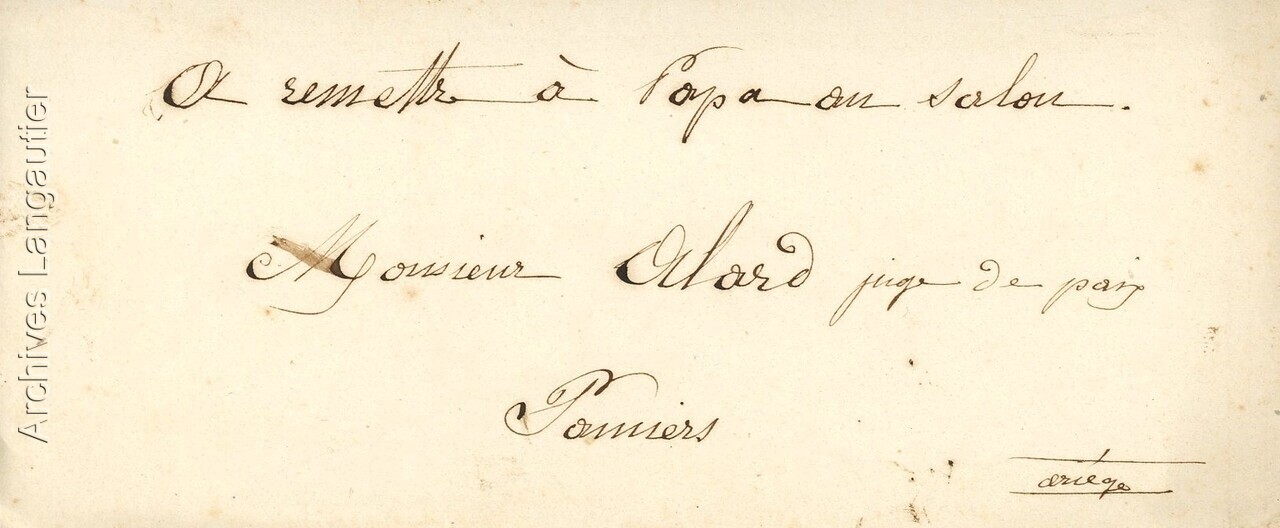 A remettre à Papa au salon.
Monsieur Alard juge de paix
Pamiers
ariège
Archives Langautier